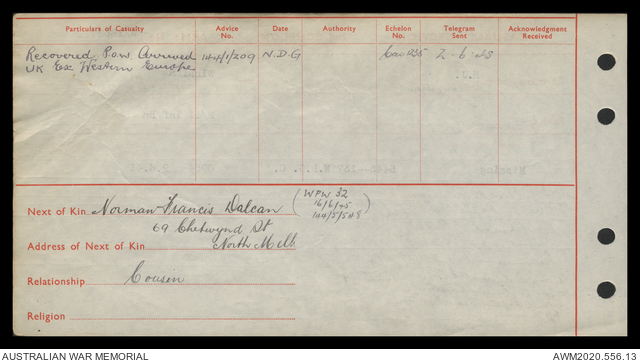 Particulars of Casualty Advice No. Date Authority Echelon No. Telegram Sent Acknowledgment Received
Recovered P.O.W Arrived 144/1/209 N.D.G Cas 2-6-45
UK Ex Western Europe
Next of Kin Norman Francis Dalcan (WPW 32
16/6/45
144/5/548)
69 Chetwynd St
Address of Next of Kin North Melb
Relationship Cousen
Religion
AUSTRALIAN WAR MEMORIAL AWM2020.556.13